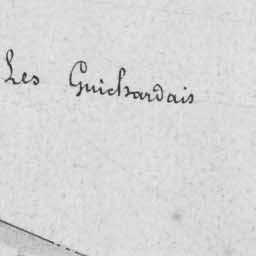 Les Guichardais